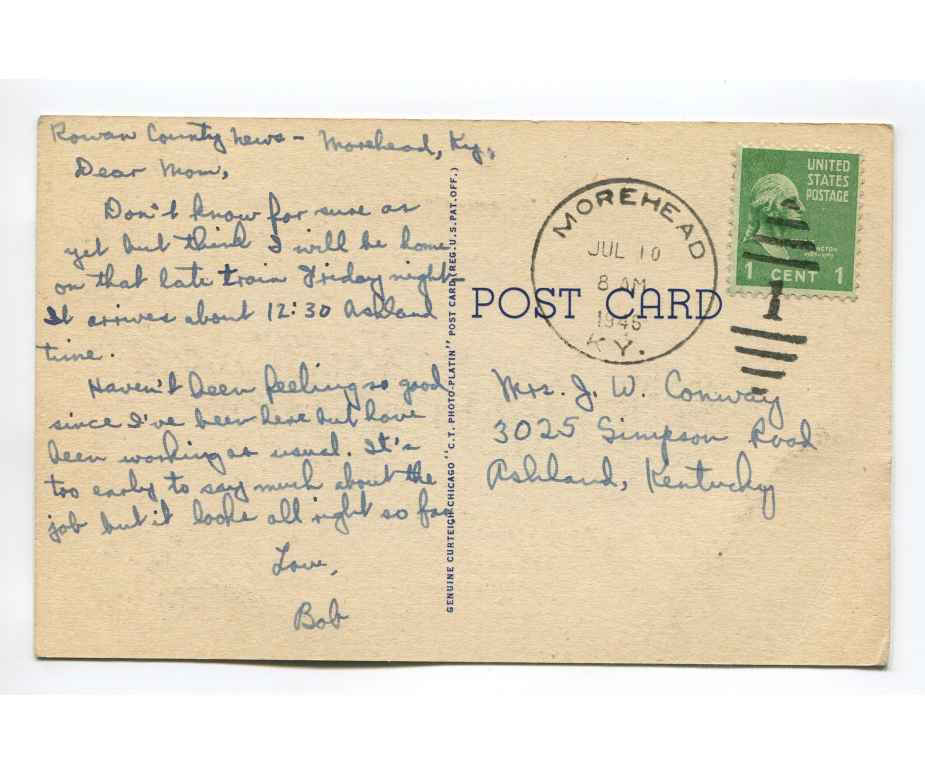 Rowan County News - Morehead, Ky.
Dear Mom,
Don't know for sure as
yet but think I will be home
on that late train Friday night.
It arrives about 12:30 Ashland
time.
Haven't been feeling so good
since I've been here but have
been working as usual. It's
too early to say much about the
job but it looks all right so far.
Love,
Bob
GENUINE CURTEICH-CHICAGO "C.T. PHOTO-PLATIN" POST CARD (REG. U.S. PAT. OFF.)
POST CARD
MOREHEAD
JUL 10
8 AM
1946
KY.
UNITED
STATES
POSTAGE
1 CENT 1
1
Mrs. J. W. Conway
3025 Simpson Road
Ashland, Kentucky